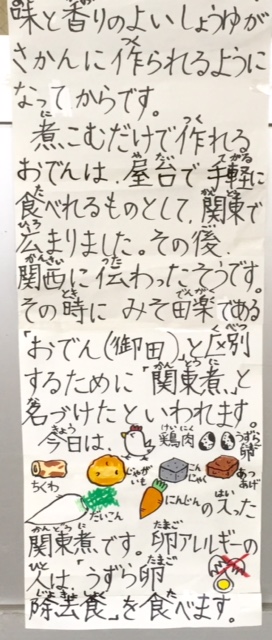 味と香りのよいしょうゆが
さかんに作られるように
なってからです。
煮こむだけで作れる
おでんは、屋台で手軽に
食べれるものとして、関東で
広まりました。その後、
関西に伝わったそうです。
その時に みそ田楽である
「おでん(御田)」と区別
するために「関東煮」と
名づけたといわれます。
今日は、鶏肉 うずら卵
ちくわ じゃがいも こんにゃく あつあげ
だいこん にんじんの入った
関東煮です。卵アレルギーの
人は、「うずら卵
除去食」を食べます。